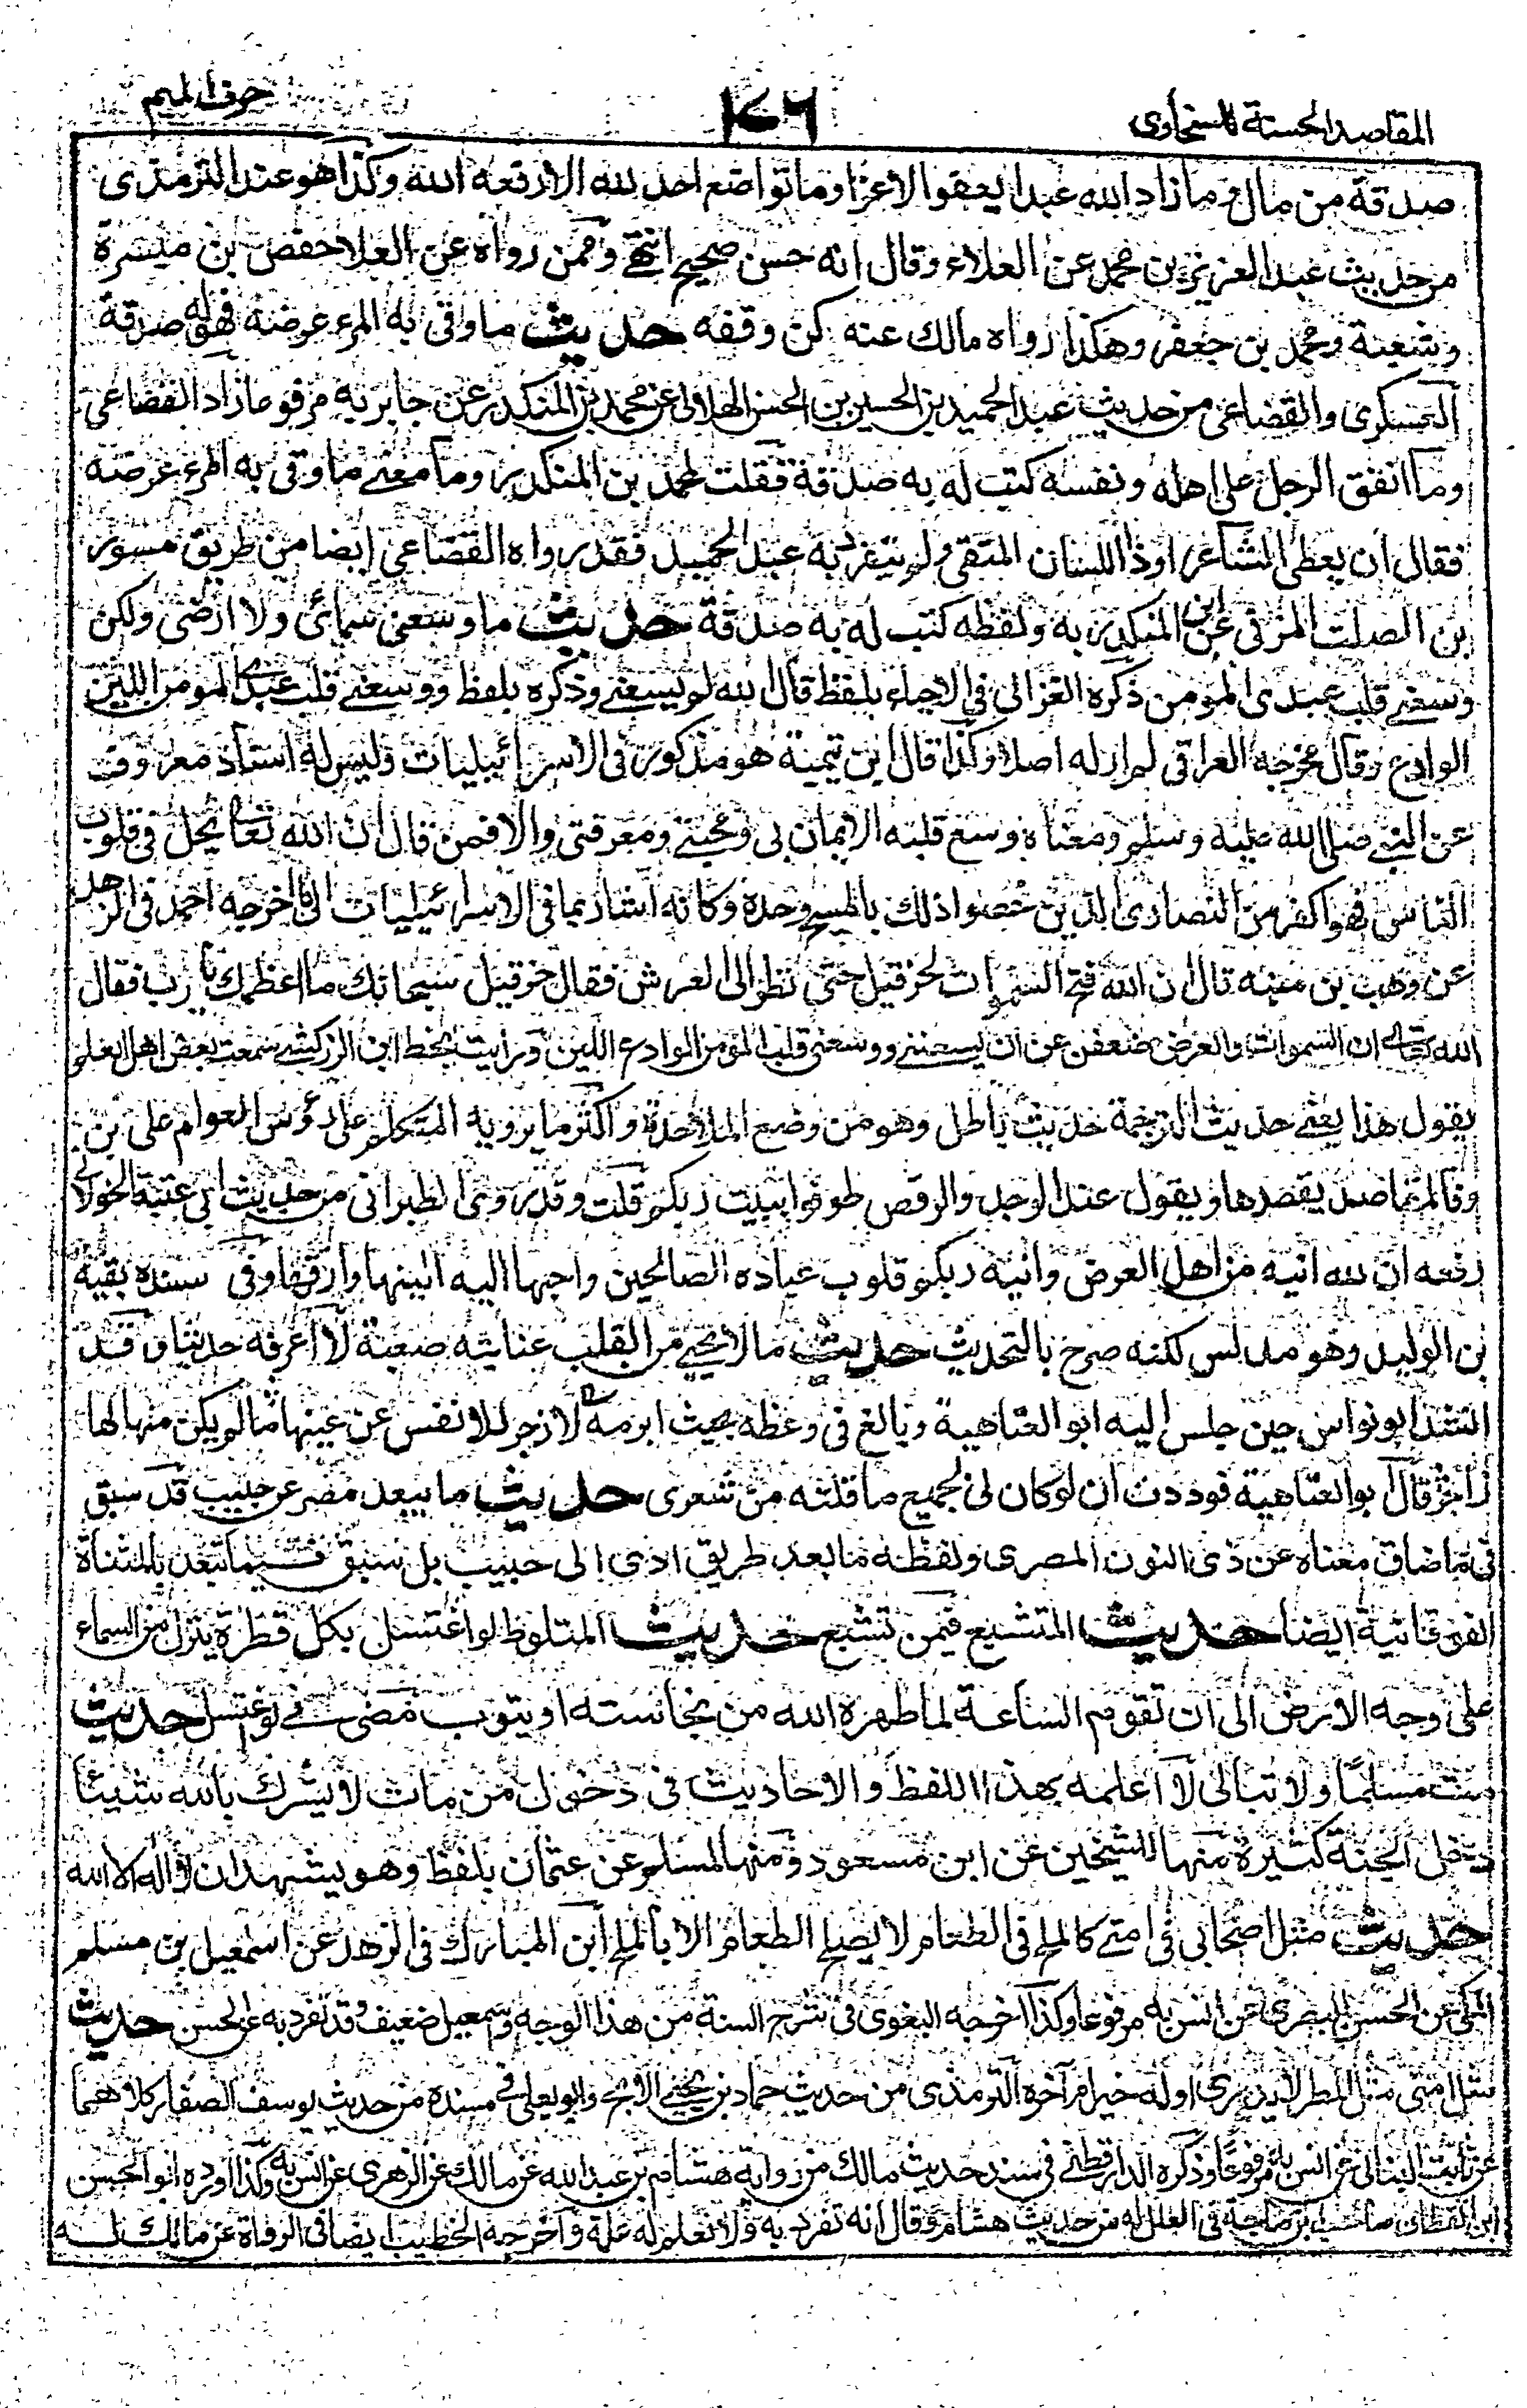 المقاصد الحسنة للسخاوى
١٧٦
حرف الميم
صدقة من مال وما زاد الله عبدا يعفو الا عزا وما تواضع احد لله الا رفعه الله وكذا هو عند الترمذى
من حديث عبد العزيز بن محمد عن العلاء وقال انه حسن صحيح انتهى وممن رواه عن العلا حفص بن ميسرة
وشعبة ومحمد بن جعفر وهكذا رواه مالك عنه لكن وقفه حديث ما وقى به المرء عرضه فهو له صدقة
العسكرى والقضاعى من حديث عبد الحميد بن الحسين بن الحسن الهلالى عن محمد بن المنكدر عن جابر به مرفوعا زاد القضاعى
وما انفق الرجل على اهله ونفسه كتب له به صدقة فقلت لمحمد بن المنكدر وما معنى ما وقى به المرء عرضه
فقال ان يعطى الشاعر او ذا اللسان المتقى ولم ينفرد به عبد الحميد فقد رواه القضاعى ايضا من طريق مسور
بن الصلت المزنى عن ابن المنكدر به ولفظه كتب له به صدقة حديث ما وسعنى سمائى ولا ارضى ولكن
وسعنى قلب عبدى المومن ذكره الغزالى فى الاحياء بلفظ قال الله لم يسعنى وذكره بلفظ ووسعنى قلب عبدى المومن اللين
الوادع وقال مخرجه العراقى لم ار له اصلا وكذا قال ابن تيمية هو مذكور فى الاسرائيليات وليس له اسناد معروف
عن النبى صلى الله عليه وسلم ومعناه وسع قلبه الايمان بى ومحبتى ومعرفتى والا فمن قال ان الله تعالى يحل فى قلوب
الناس فهو اكفر من النصارى الذين خصوا ذلك بالمسيح وحده وكانه اشار بما فى الاسرائيليات الى ما اخرجه احمد فى الزهد
عن وهب بن منبه قال ان الله فتح السموات لحزقيل حتى نظر الى العرش فقال حزقيل سبحانك ما اعظمك يا رب فقال
الله تعالى ان السموات والعرض ضعفن عن ان يسعننى ووسعنى قلب المؤمن الوادع اللين ورايت بخط ابن الزركشى سمعت بعض اهل العلم
يقول هذا يعنى حديث الترجمة حديث باطل وهو من وضع الملاحدة واكثر ما يرويه المتكلم على رؤس العوام على بن
وفا لمقاصد يقصدها ويقول عند الوجد والرقص طوفوا ببيت ربكم قلت وقد روى الطبرانى من حديث ابى عتبة الخولانى
رفعه ان لله انية من اهل العرض وانية ربكم قلوب عباده الصالحين واحبها اليه الينها وارقها وفى سنده بقية
بن الوليد وهو مدلس لكنه صرح بالتحديث حديث ما لا يجئ من القلب عنايته صعبة لا اعرفه حديثا وقد
انشد ابو نواس حين جلس اليه ابو العتاهية وبالغ فى وعظه بحيث ابرمه لا زجر للانفس عن غيها ما لم يكن منها لها
زاجر قال ابو العتاهية فوددت ان لو كان لى بجميع ما قلته من شعرى حديث ما يبعد مصر عن حبيب قد سبق
فى ما ضاق معناه عن ذى النون المصرى ولفظه ما بعد طريق ادى الى حبيب بل سبق فيما تبعد بالمثناة
الفوقانية ايضا حديث المتشبع فيمن تشبع حديث المتلوط لو اغتسل بكل قطرة ينزل من السماء
على وجه الارض الى ان تقوم الساعة لما طهره الله من نجاسته او يتوب مضى فى لو اغتسل حديث
مت مسلما ولا تبالى لا اعلمه بهذا اللفظ والاحاديث فى دخول من مات لا يشرك بالله شيئا
دخل الجنة كثيرة منها للشيخين عن ابن مسعود ومنها لمسلم عن عثمان بلفظ وهو يشهد ان لا اله الا الله
حديث مثل اصحابى فى امتى كالملح فى الطعام لا يصلح الطعام الا بالملح ابن المبارك فى الزهد عن اسمعيل بن مسلم
المكى عن الحسن البصرى عن انس به مرفوعا وكذا اخرجه البغوى فى شرح السنة من هذا الوجه واسمعيل ضعيف وقد تفرد به عن الحسن حديث
مثل امتى مثل المطر لا يدرى اوله خير ام آخره الترمذى من حديث حماد بن يحيى الابح وابو يعلى فى مسنده من حديث يوسف الصفار كلاهما
عن ثابت البنانى عن انس به مرفوعا وذكره الدارقطنى فى سند حديث مالك من رواية هشام بن عبد الله عن مالك عن الزهرى عن انس به وكذا اورده ابو الحسن
ابن القطان صاحب ابن ماجة فى العلل له من حديث هشام وقال انه تفرد به ولا نعلم له علة واخرجه الخطيب ايضا فى الرواة عن مالك له